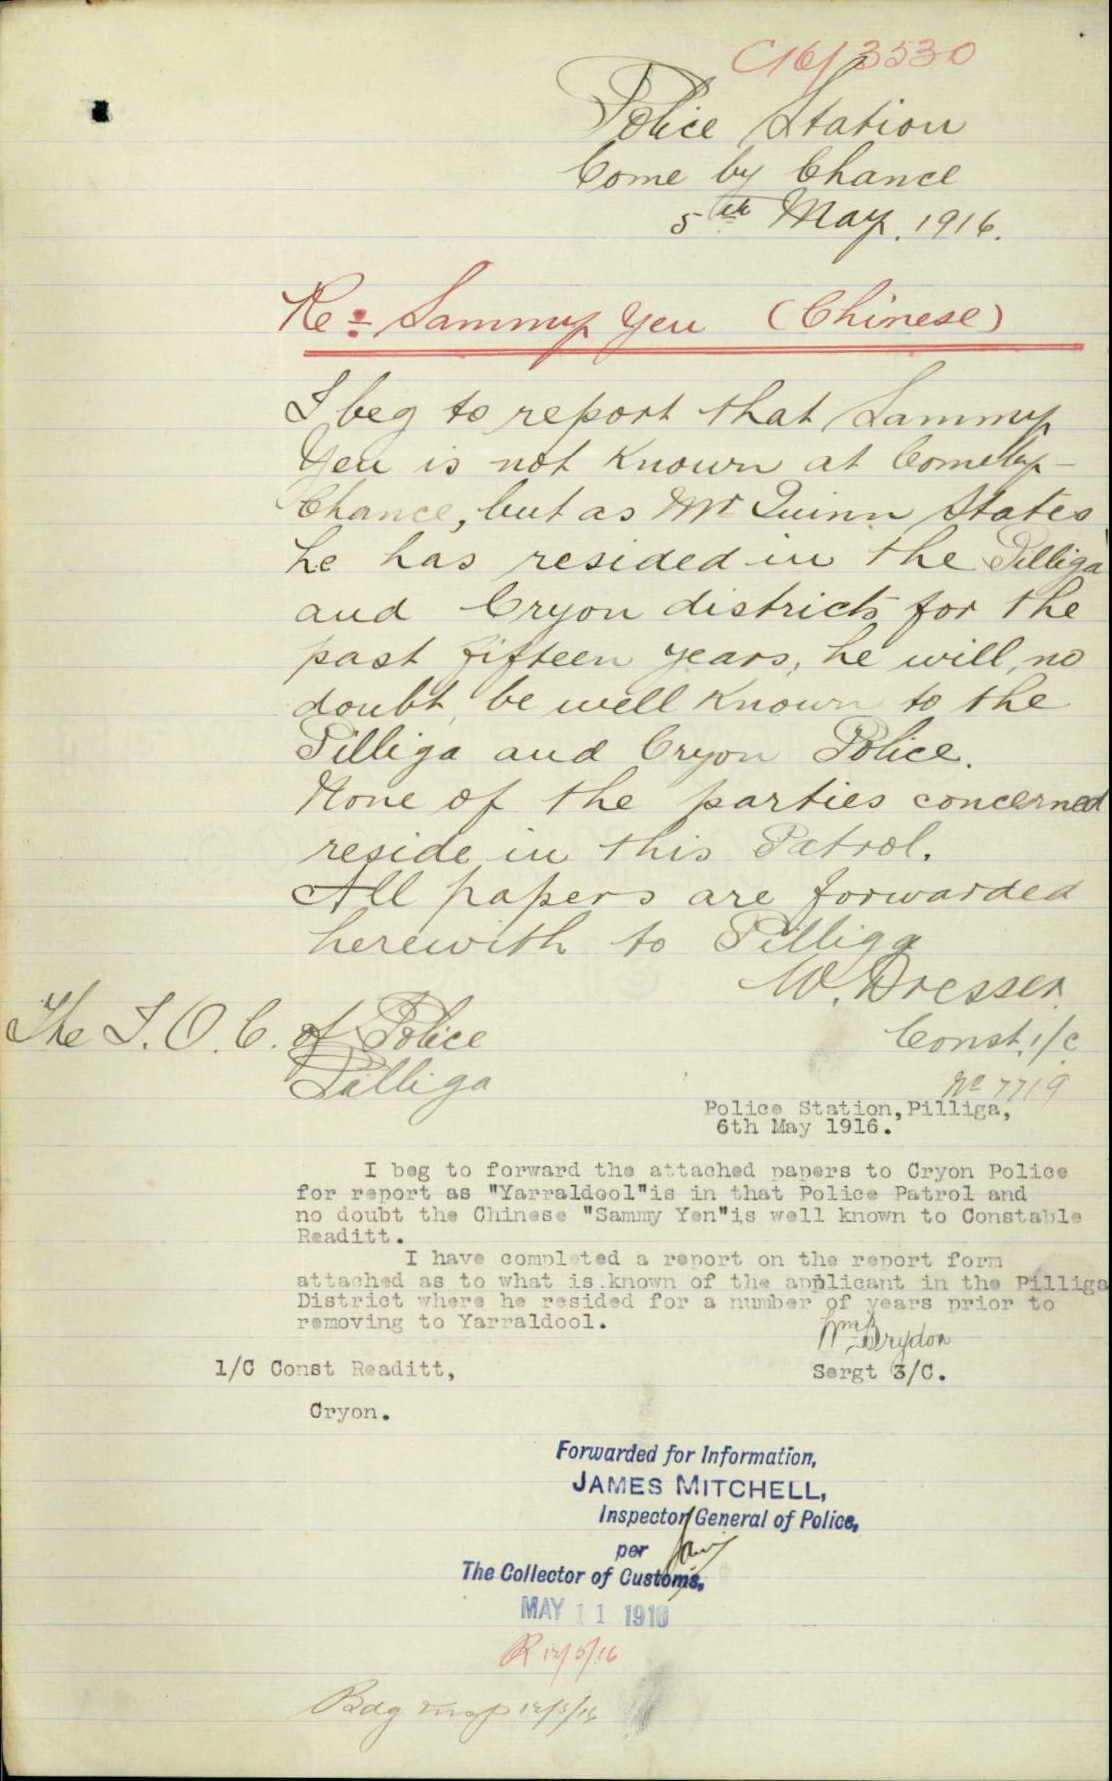 C16/3530
Police Station
Come by Chance
5th May. 1916.
Re:- Sammy Yeu (Chinese)
I beg to report that Sammy
Yeu is not known at Come by-
Chance, but as Mr Quinn States
he has resided in the Pilliga
and Cryon districts for the
past fifteen years, he will, no
doubt, be well known to the
Pilliga and Cryon Police.
None of the parties concerned
reside in this Patrol.
All papers are forwarded
herewith to Pilliga
W. Dresser.
Const. 1/c
No 7719
The I. O. C. of Police
Pilliga
Police Station, Pilliga,
6th May 1916.
I beg to forward the attached papers to Cryon Police
for report as "Yarraldool"is in that Police Patrol and
no doubt the Chinese "Sammy Yen"is well known to Constable
Readitt.
I have completed a report on the report form
attached as to what is.known of the applicant in the Pilliga
District where he resided for a number of years prior to
removing to Yarraldool.
Wm Drydon
Sergt 3/C.
1/C Const Readitt,
Cryon.
Forwarded for Information,
JAMES MITCHELL,
Inspector General of Police,
per
The Collector of Customs,
MAY 11 1916
R 12/5/16
12/5/16